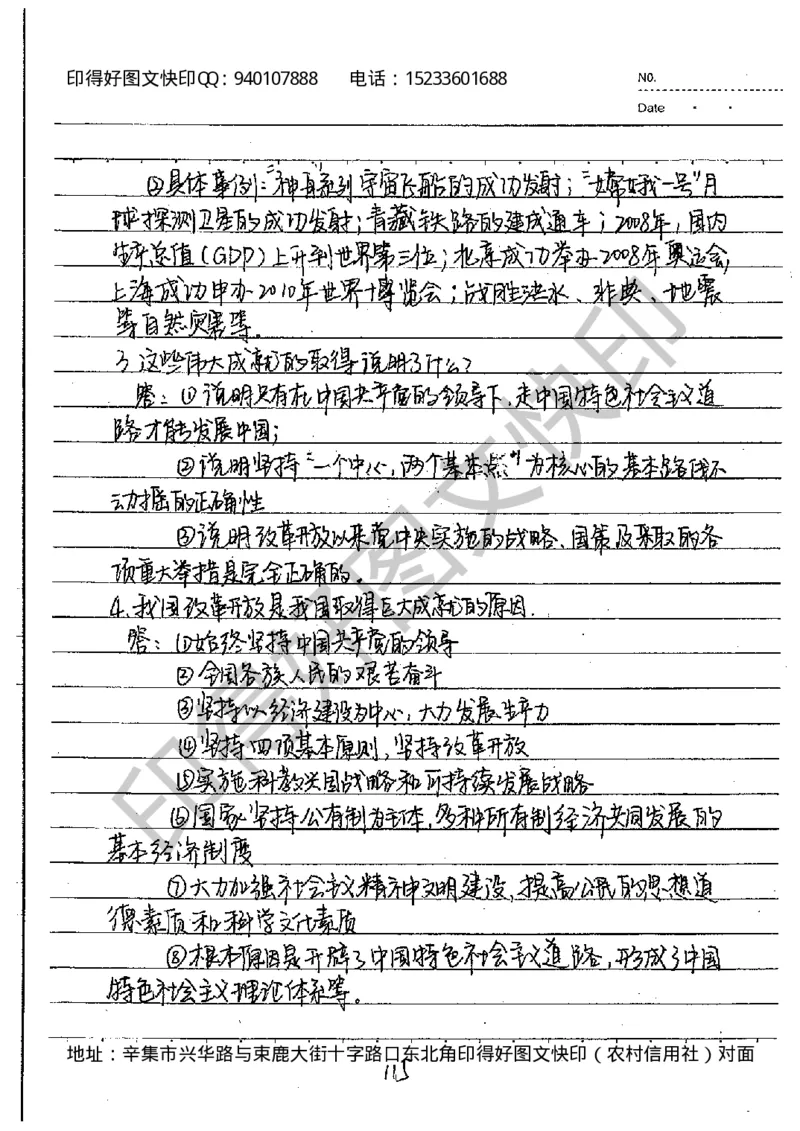 印得好图文快印QQ：940107888 电话：15233601688
NO.
Date
②具体事例："神舟"系列宇宙飞船的成功发射；"嫦娥一号"月
球探测卫星的成功发射；青藏铁路的建成通车；2008年，国内
生产总值(GDP)上升到世界第三位；北京成功举办2008年奥运会,
上海成功申办2010年世界博览会；战胜洪水、非典、地震
等自然灾害等.
3.这些伟大成就的取得说明了什么?
答：①说明只有在中国共产党的领导下，走中国特色社会主义道
路才能发展中国；
②说明坚持"一个中心，两个基本点"为核心的基本路线不
动摇的正确性
③说明改革开放以来党中央实施的战略、国策及采取的各
项重大举措是完全正确的。
4.我国改革开放是我国取得巨大成就的原因.
答：①始终坚持中国共产党的领导
②全国各族人民的艰苦奋斗
③坚持以经济建设为中心，大力发展生产力
④坚持四项基本原则，坚持改革开放
⑤实施科教兴国战略和可持续发展战略
⑥国家坚持公有制为主体，多种所有制经济共同发展的
基本经济制度
⑦大力加强社会主义精神文明建设，提高公民的思想道
德素质和科学文化素质
⑧根本原因是开辟了中国特色社会主义道路，形成了中国
特色社会主义理论体系等。
印得好图文快印
地址：辛集市兴华路与束鹿大街十字路口东北角印得好图文快印（农村信用社）对面
115